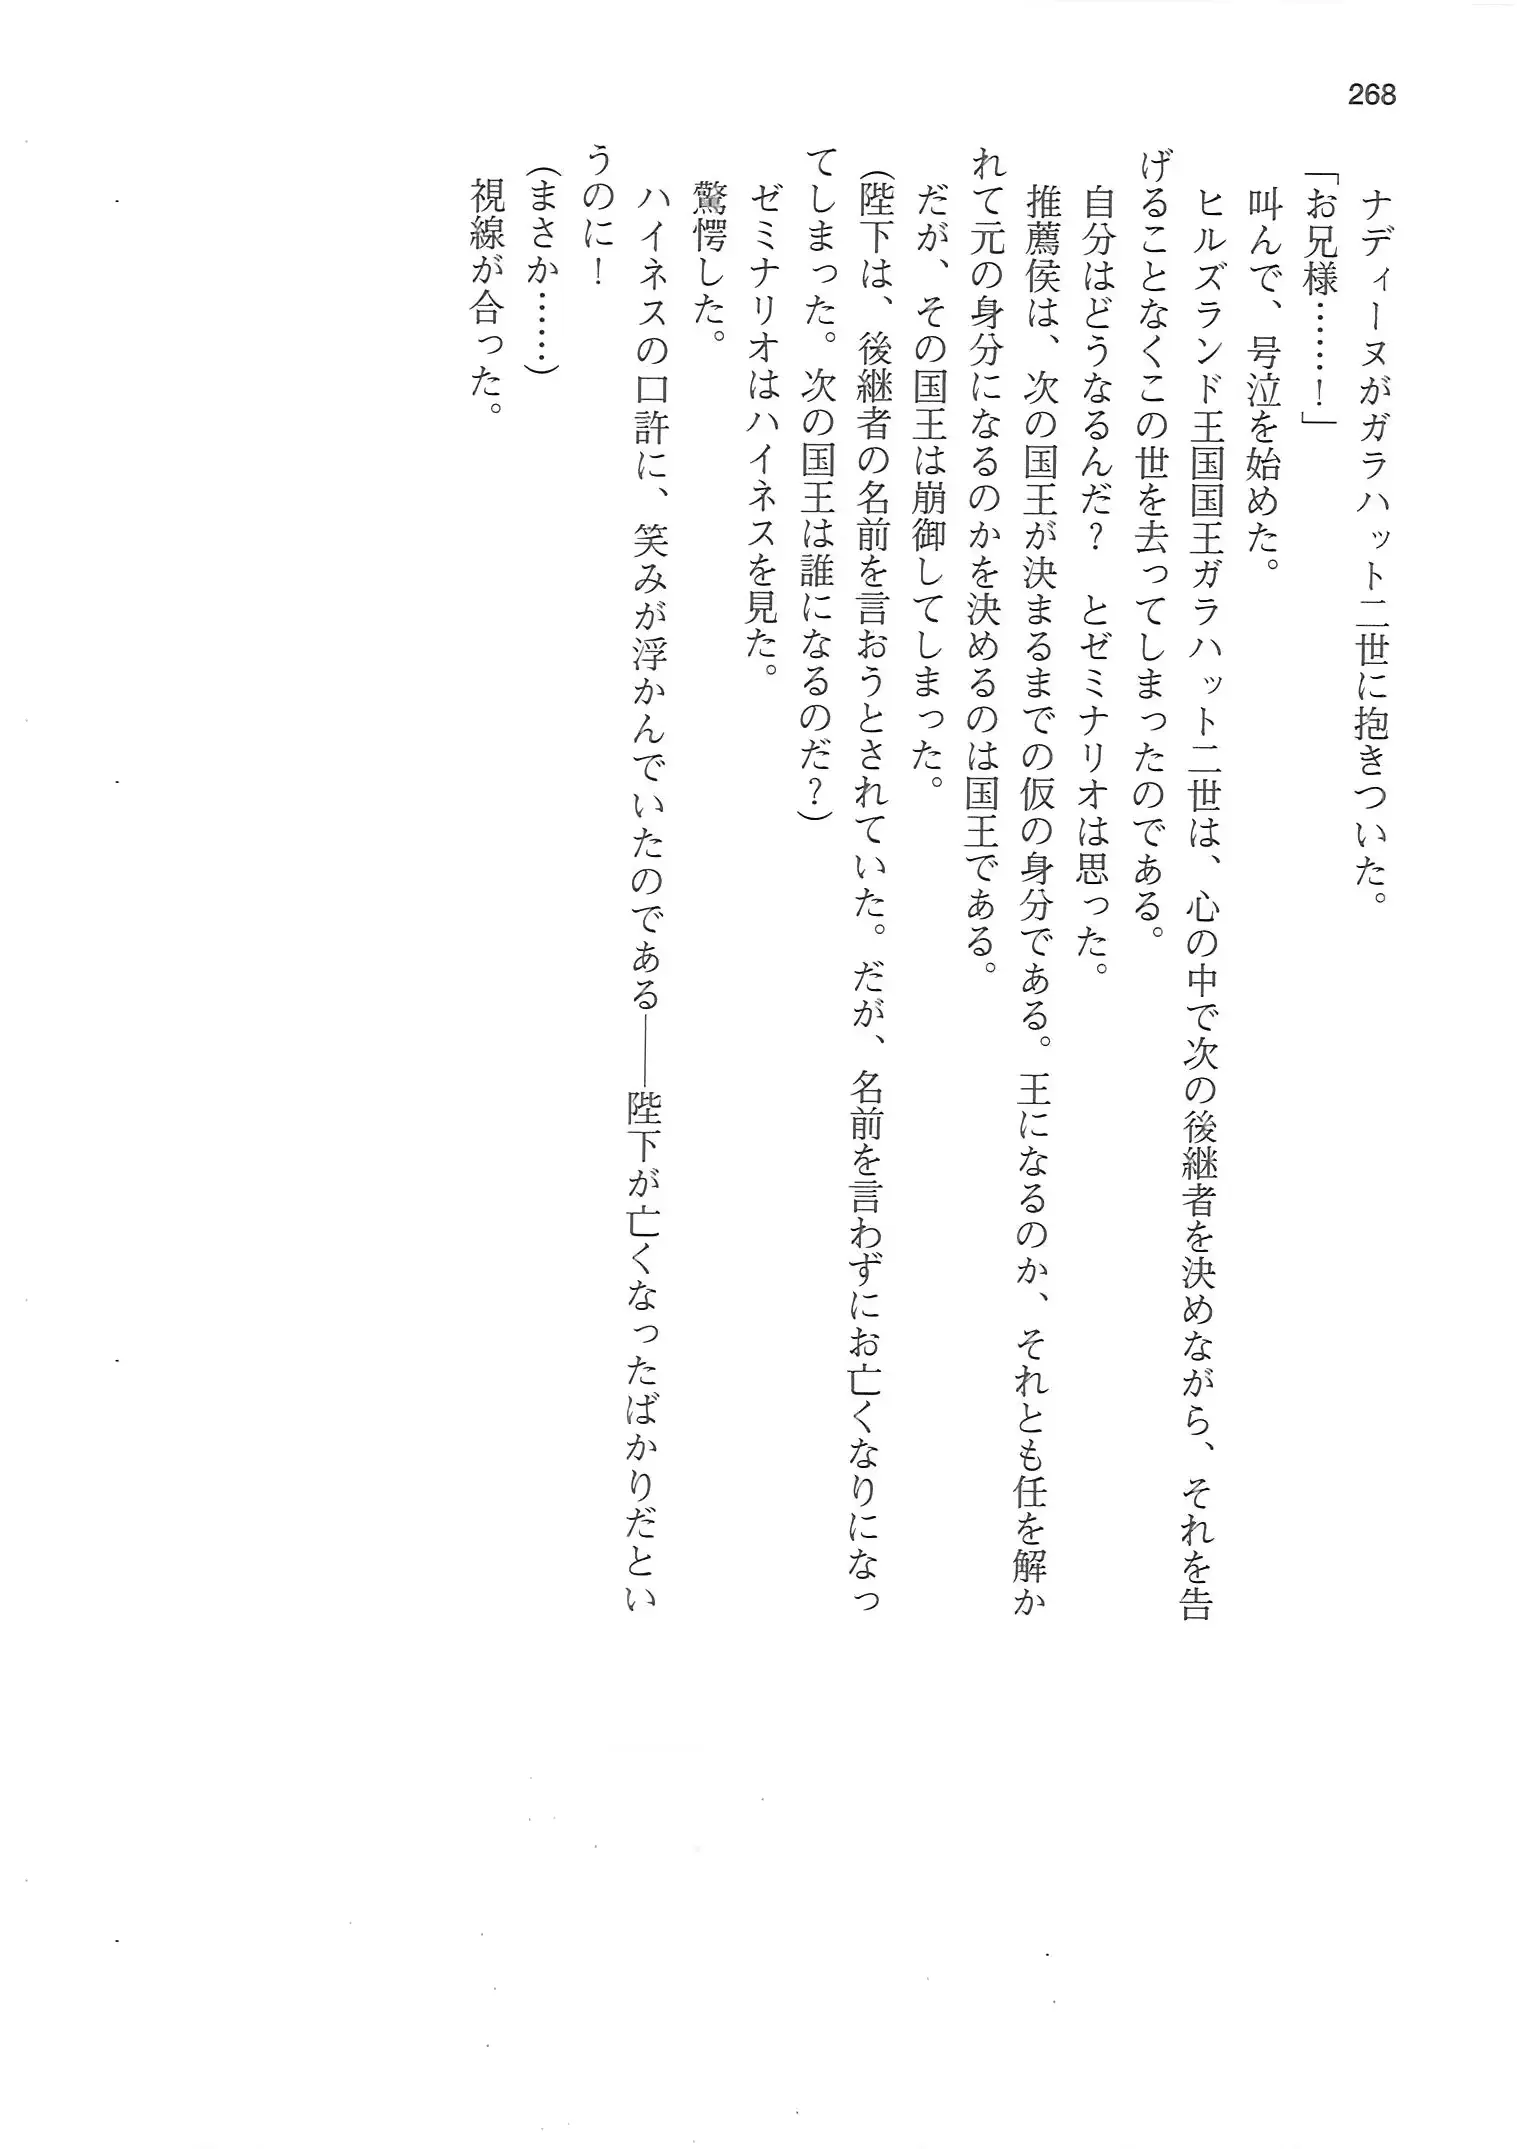 268
ナディーヌがガラハット二世に抱きついた。
「お兄様……！」
叫んで、号泣を始めた。
ヒルズランド王国国王ガラハット二世は、心の中で次の後継者を決めながら、それを告
げることなくこの世を去ってしまったのである。
自分はどうなるんだ？　とゼミナリオは思った。
推薦侯は、次の国王が決まるまでの仮の身分である。王になるのか、それとも任を解か
れて元の身分になるのかを決めるのは国王である。
だが、その国王は崩御してしまった。
（陛下は、後継者の名前を言おうとされていた。だが、名前を言わずにお亡くなりになっ
てしまった。次の国王は誰になるのだ？）
ゼミナリオはハイネスを見た。
驚愕した。
ハイネスの口許に、笑みが浮かんでいたのである――陛下が亡くなったばかりだとい
うのに！
（まさか……）
視線が合った。